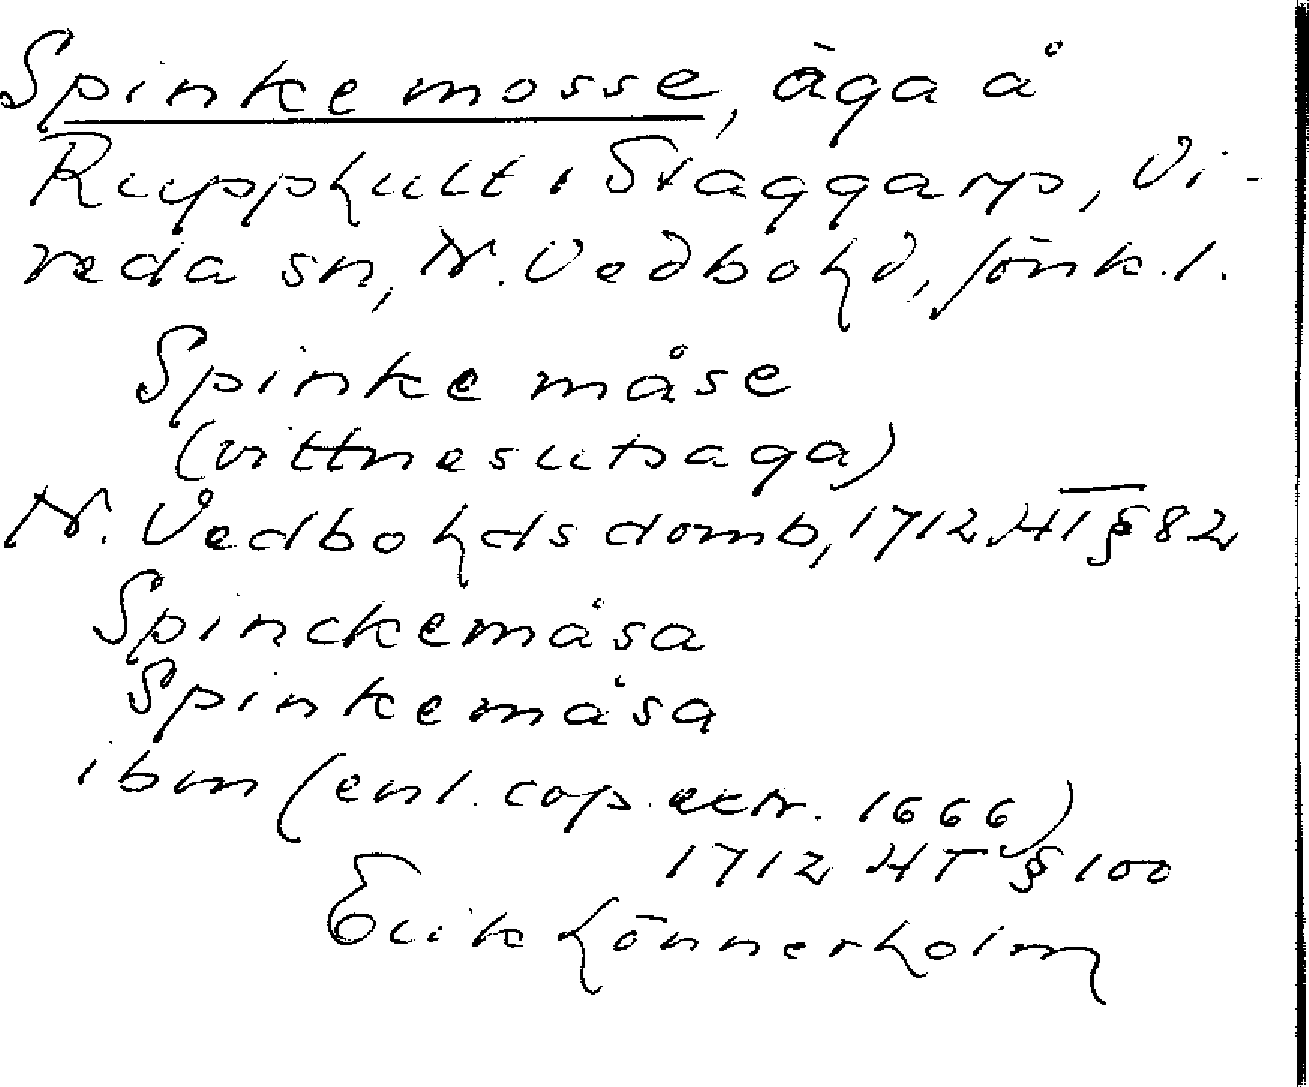 Spinke mosse, äga å
Rupphult i Staggarp, Vi-
reda sn, N. Vedbo hd, Jönk. l.
Spinke måse
(vittnesutsaga)
N. Vedbo hds domb, 1712 HT § 82
Spinckemåsa
Spinkemåsa
ibm (enl. cop. extr. 1666)
1712 HT § 100
Erik Lönnerholm